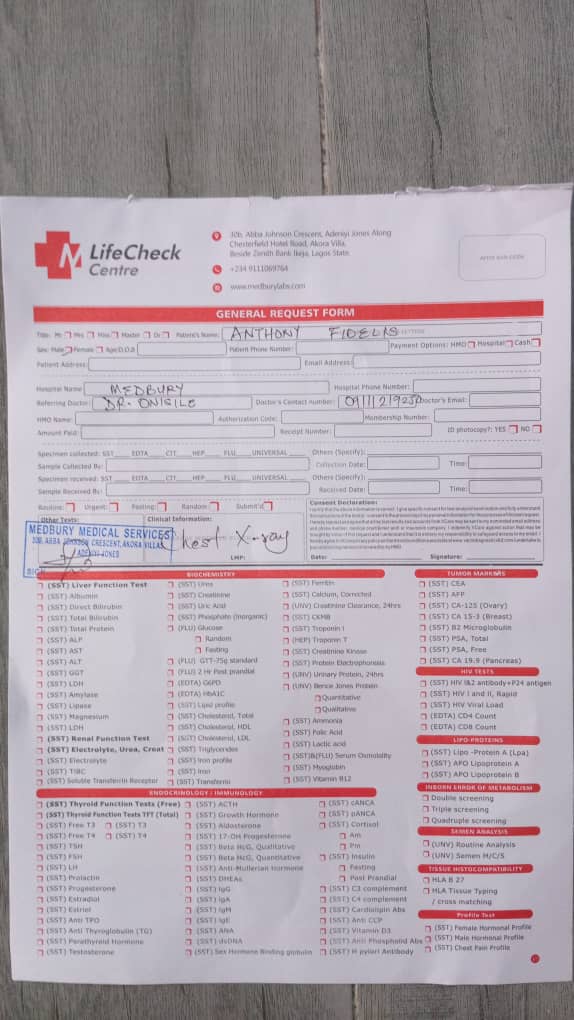 LifeCheck
Centre
30b, Abba Johnson Crescent, Adeniyi Jones Along
Chesterfield Hotel Road, Akora Villa,
Beside Zenith Bank Ikeja, Lagos State.
+234 9111069764
www.medburylabs.com
GENERAL REQUEST FORM
Title: Mr Mrs Miss Master Dr Patient's Name: ANTHONY FIDELIS
Sex: Male Female Age/D.O.B Patient Phone Number: Payment Options: HMO Hospital Cash
Patient Address: Email Address:
Hospital Name: MEDBURY Hospital Phone Number:
Referring Doctor: DR. ONISILE Doctor's Contact number: Doctor's Email:
HMO Name: Authorization Code: Membership Number:
Amount Paid: Receipt Number: ID photocopy?: YES NO
Specimen collected: SST EDTA CIT HEP FLU UNIVERSAL Others (Specify):
Sample Collected By: Collection Date: Time:
Specimen received: SST EDTA CIT HEP FLU UNIVERSAL Others (Specify):
Sample Received By: Received Date: Time:
Routine: Urgent: Fasting: Random: Submit'd Consent Declaration:
Other Tests: Clinical Information:
MEDBURY MEDICAL SERVICES
30B, ABBA JOHNSON CRESCENT, AKORA VILLA
ADENIYI JONES
Chest X-ray
LMP: Date: Signature:
BIOCHEMISTRY
(SST) Liver Function Test
(SST) Albumin
(SST) Direct Bilirubin
(SST) Total Bilirubin
(SST) Total Protein
(SST) ALP
(SST) AST
(SST) ALT
(SST) GGT
(SST) LDH
(SST) Amylase
(SST) Lipase
(SST) Magnesium
(SST) LDH
(SST) Renal Function Test
(SST) Electrolyte, Urea, Creat
(SST) Electrolyte
(SST) TIBC
(SST) Soluble Transferrin Receptor
(SST) Urea
(SST) Creatinine
(SST) Uric Acid
(SST) Phosphate (Inorganic)
(FLU) Glucose
Random
Fasting
(FLU) GTT-75g standard
(FLU) 2 Hr Post prandial
(EDTA) G6PD
(EDTA) HbA1C
(SST) Lipid profile
(SST) Cholesterol, Total
(SST) Cholesterol, HDL
(SST) Cholesterol, LDL
(SST) Triglycerides
(SST) Iron profile
(SST) Iron
(SST) Transferrin
(SST) Ferritin
(SST) Calcium, Corrected
(UNV) Creatinine Clearance, 24hrs
(SST) CKMB
(SST) Troponin I
(HEP) Troponin T
(SST) Creatinine Kinase
(SST) Protein Electrophoresis
(UNV) Urinary Protein, 24hr
(UNV) Bence Jones Protein
Quantitative
Qualitative
(SST) Ammonia
(SST) Folic Acid
(SST) Lactic acid
(SST)&(FLU) Serum Osmolality
(SST) Myoglobin
(SST) Vitamin B12
TUMOR MARKERS
(SST) CEA
(SST) AFP
(SST) CA-125 (Ovary)
(SST) CA 15-3 (Breast)
(SST) B2 Microglobulin
(SST) PSA, Total
(SST) PSA, Free
(SST) CA 19.9 (Pancreas)
HIV TESTS
(SST) HIV 1&2 antibody+P24 antigen
(SST) HIV I and II, Rapid
(SST) HIV Viral Load
(EDTA) CD4 Count
(EDTA) CD8 Count
LIPO-PROTEINS
(SST) Lipo -Protein A (Lpa)
(SST) APO Lipoprotein A
(SST) APO Lipoprotein B
INBORN ERROR OF METABOLISM
Double screening
Triple screening
Quadruple screening
SEMEN ANALYSIS
(UNV) Routine Analysis
(UNV) Semen M/C/S
TISSUE HISTOCOMPATIBILITY
HLA B 27
HLA Tissue Typing
/ cross matching
Profile Test
(SST) Female Hormonal Profile
(SST) Male Hormonal Profile
(SST) Chest Pain Profile
ENDOCRINOLOGY / IMMUNOLOGY
(SST) Thyroid Function Tests (Free)
(SST) Thyroid Function Tests TFT (Total)
(SST) Free T3 (SST) T3
(SST) Free T4 (SST) T4
(SST) TSH
(SST) FSH
(SST) LH
(SST) Prolactin
(SST) Progesterone
(SST) Estradiol
(SST) Estriol
(SST) Anti TPO
(SST) Anti Thyroglobulin (TG)
(SST) Parathyroid Hormone
(SST) Testosterone
(SST) ACTH
(SST) Growth Hormone
(SST) Aldosterone
(SST) 17-OH Progesterone
(SST) Beta HcG, Qualitative
(SST) Beta HcG, Quantitative
(SST) Anti-Mullerian Hormone
(SST) DHEAs
(SST) IgG
(SST) IgA
(SST) IgM
(SST) IgE
(SST) ANA
(SST) dsDNA
(SST) Sex Hormone Binding globulin
(SST) cANCA
(SST) pANCA
(SST) Cortisol
Am
Pm
(SST) Insulin
Fasting
Post Prandial
(SST) C3 complement
(SST) C4 complement
(SST) Cardiolipin Abs
(SST) Anti CCP
(SST) Vitamin D3
(SST) Anti Phospholid Abs
(SST) H pylori Antibody